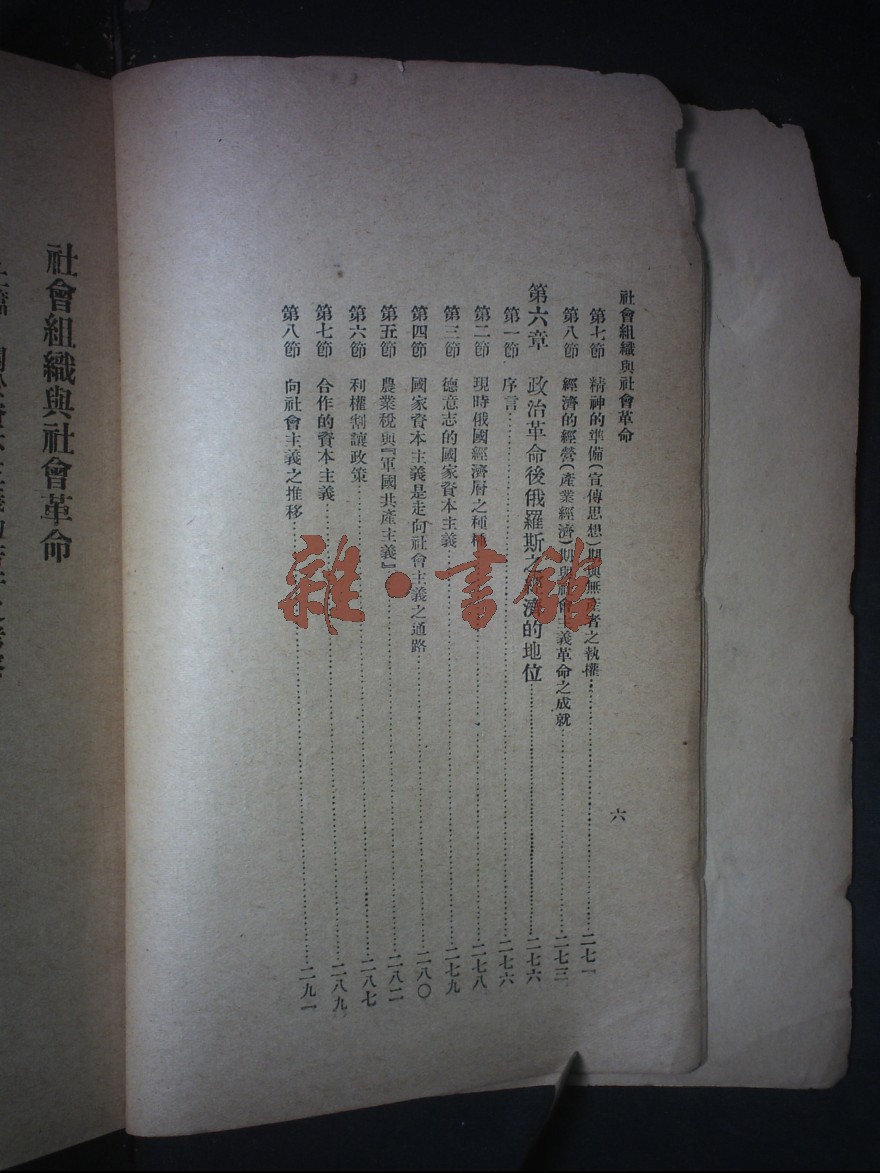 社會組織與社會革命
六
第七節 精神的準備(宣傳思想)期與無產者之執權……二七一
第八節 經濟的經營(產業經濟)期與社會主義革命之成就……二七三
第六章 政治革命後俄羅斯之經濟的地位……二七六
第一節 序言……二七六
第二節 現時俄國經濟層之種種……二七八
第三節 德意志的國家資本主義……二七九
第四節 國家資本主義是走向社會主義之通路……二八〇
第五節 農業稅與『軍國共產主義』……二八二
第六節 利權割讓政策……二八七
第七節 合作的資本主義……二八九
第八節 向社會主義之推移……二九一
社會組織與社會革命
雜·書館